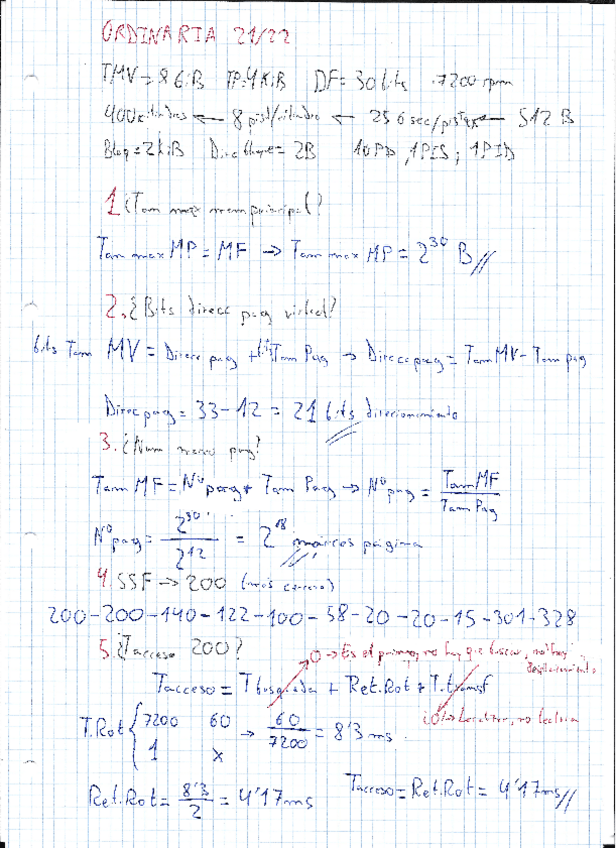 ORDINARIA 21/22
TMV = 8 GiB TP: 4 KiB DF = 30 bits 7200 rpm
400 cilindros ← 8 pist/cilindro ← 256 sec/pista ← 512 B
Bloq = 2 KiB Direc bloque = 2B 10 PD, 1 PIS; 1 PID
1. ¿Tam max mem principal?
Tam max MP = MF → Tam max MP = 2^30 B //
2. ¿Bits direcc pag virtual?
bits Tam MV = Direcc pag + bits Tam Pag → Direcc pag = Tam MV - Tam pag
Direc pag = 33 - 12 = 21 bits direcionamiento
3. ¿Num marco pag?
Tam MF = Nº pag * Tam Pag → Nº pag = Tam MF / Tam Pag
Nº pag = 2^30 / 2^12 = 2^18 marcos página //
4. SSF → 200 (más cercano)
200-200-140-122-100-58-20-20-15-301-328
5. ¿Tacceso 200?
0 → Es el primero, no hay que buscar, no hay desplazamiento
Tacceso = T busqueda + Ret. Rot + T. transf
T. Rot { 7200 60 → 60 / 7200 = 8'3 ms.
1 x
Ret. Rot = 8'3 / 2 = 4'17 ms
Tacceso = Ret. Rot = 4'17 ms //